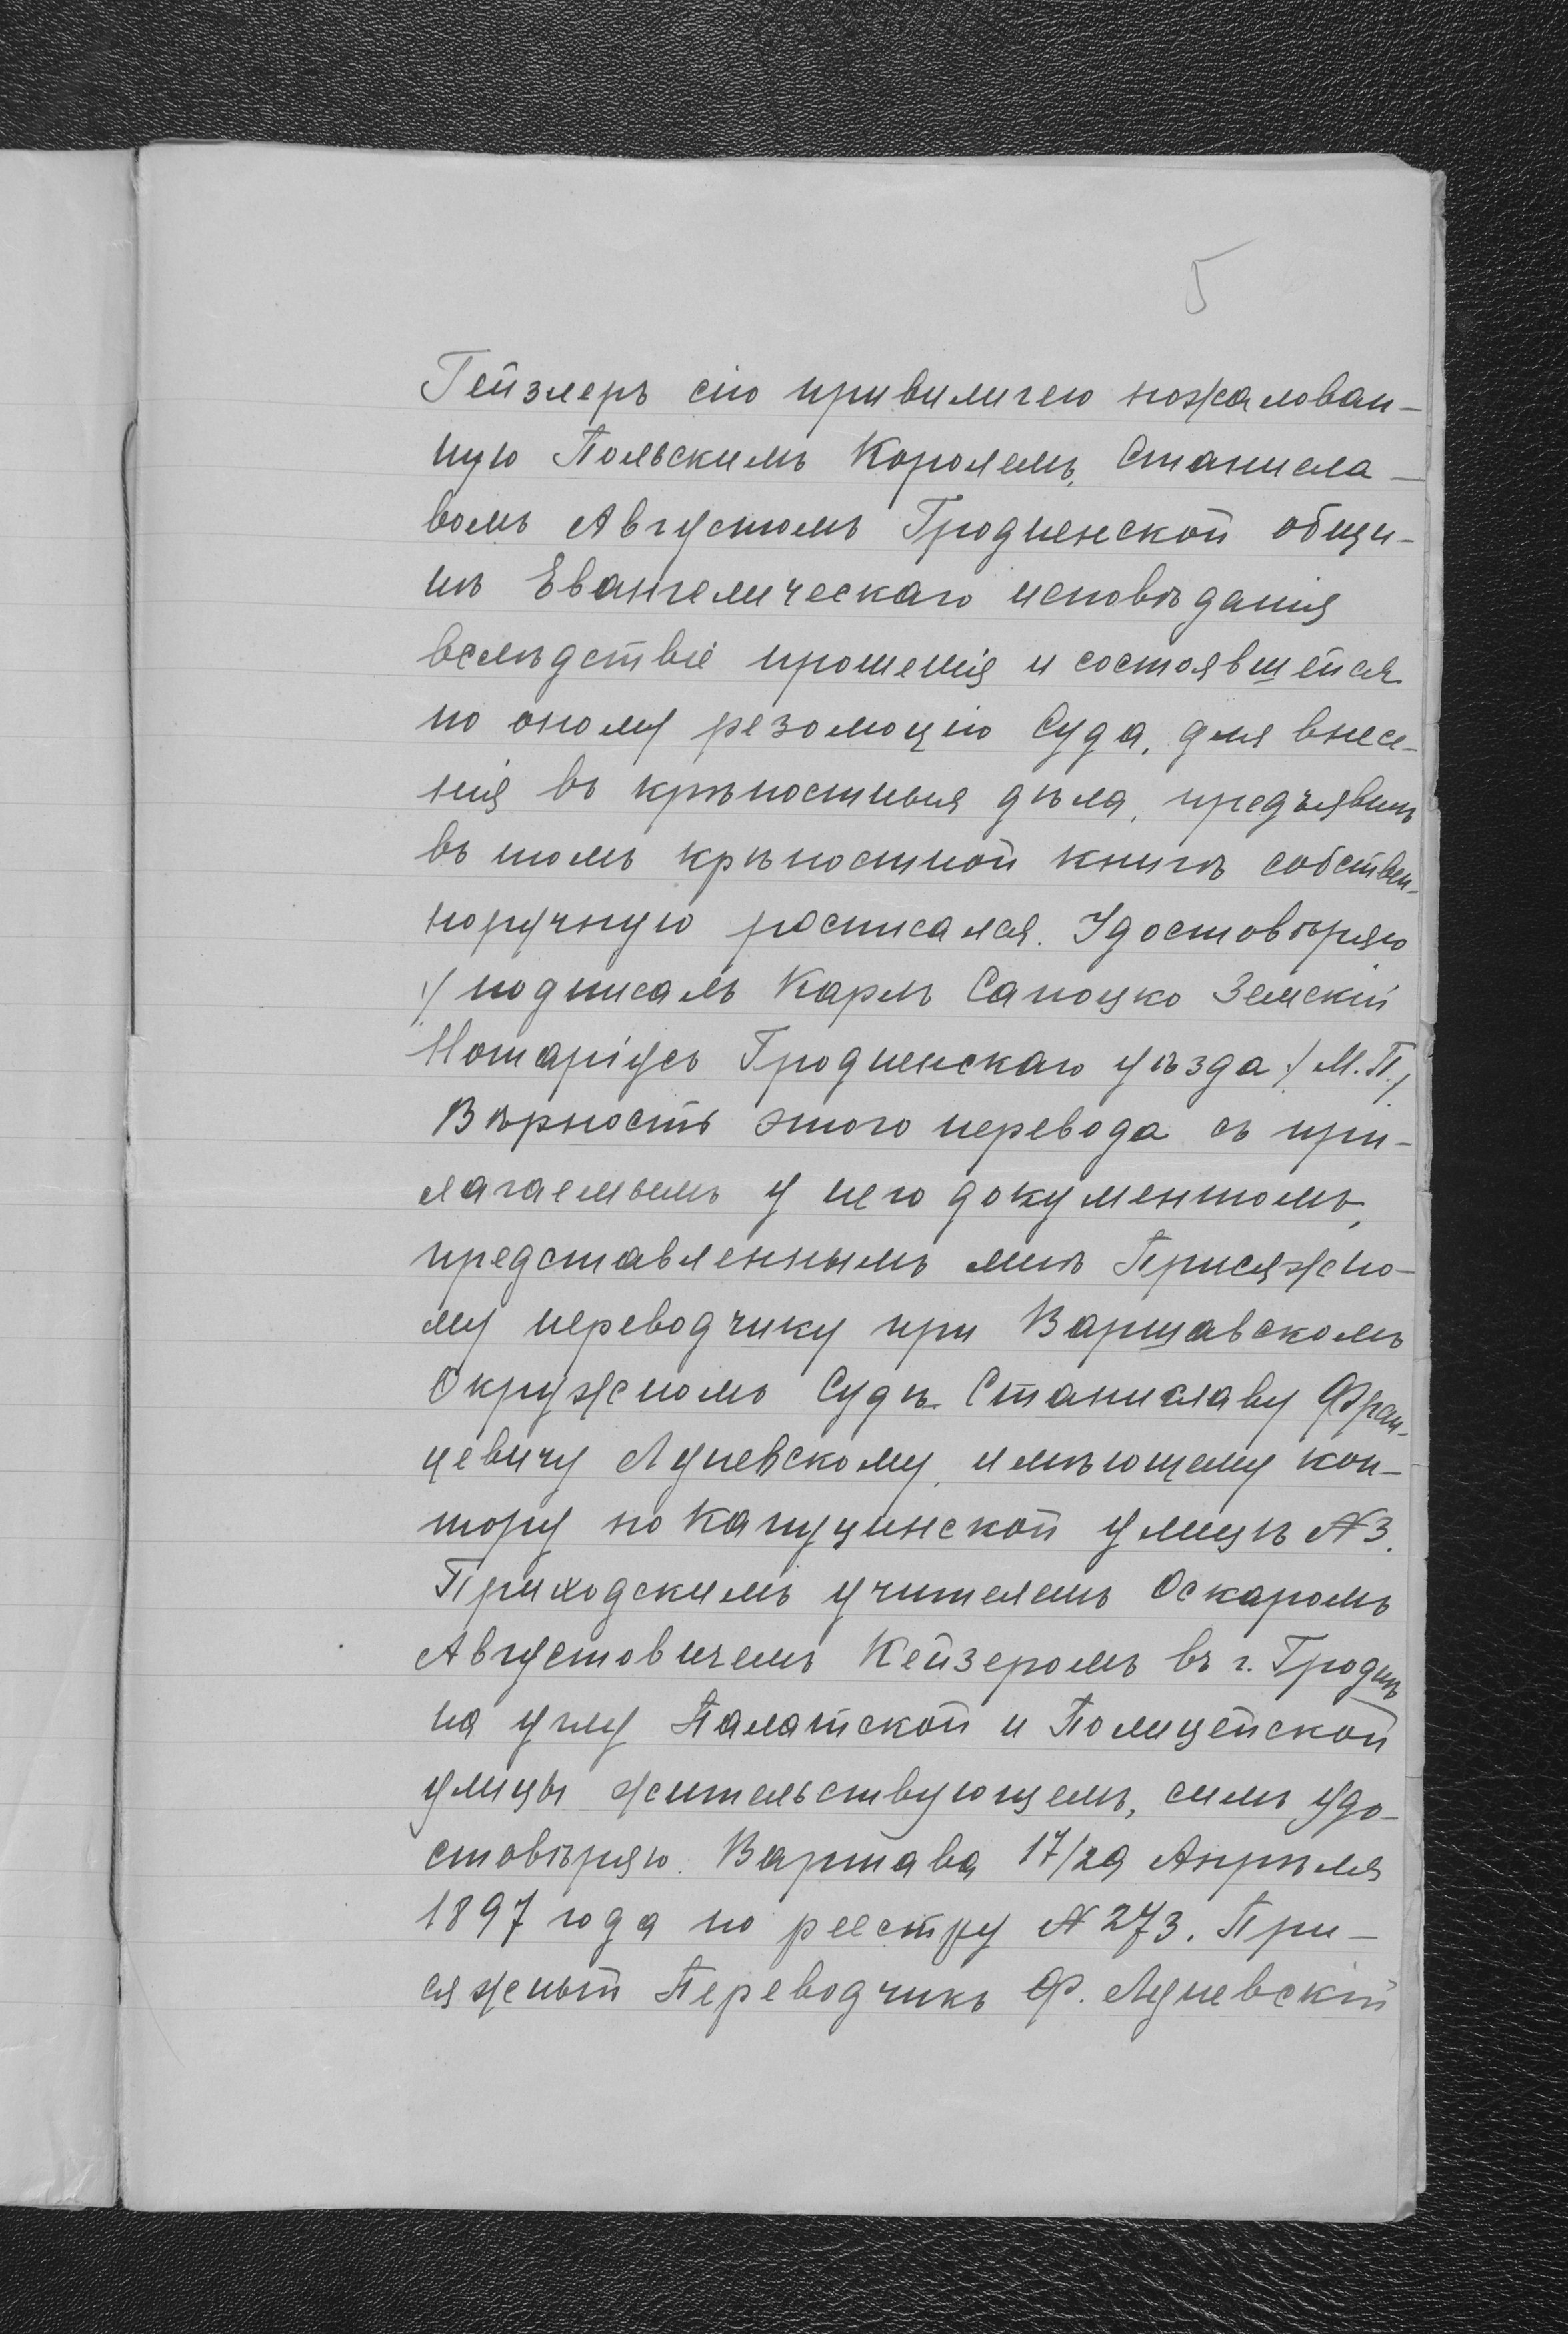 5
Гейзлеръ сію привилигею пожалован-
ную Польскимъ Королемъ, Станисла-
вомъ Августомъ Гродненской общи-
нѣ Евангелическаго исповѣданія
вслѣдствіе прошенія и состоявшейся
по оному резолюцію Суда, для внесе-
нія въ крѣпостныя дѣла, предъявилъ
въ томъ крѣпостной книгѣ собствен-
норучную росписался. Удостовѣряю
:/ подписалъ Карлъ Сапоцко Земскій
Нотаріусъ Гродненскаго уѣзда :/ М.П./
Вѣрность этого перевода съ при-
лагаемымъ у него документомъ,
представленнымъ мнѣ Присяжно-
му переводчику при Варшавскомъ
Окружномъ Судѣ Станиславу Фран-
цевичу Лудневскому, имѣющему кон-
тору по Капуцинской улицѣ №3.
Приходскимъ учителемъ Оскаромъ
Августовичемъ Кейзеромъ въ г. Гроднѣ
на углу Палатской и Полицейской
улицы жительствующемъ, симъ удо-
стовѣряю. Варшава 17/29 Апрѣля
1897 года по реестру № 273. При-
сяжный Переводчикъ Ф.